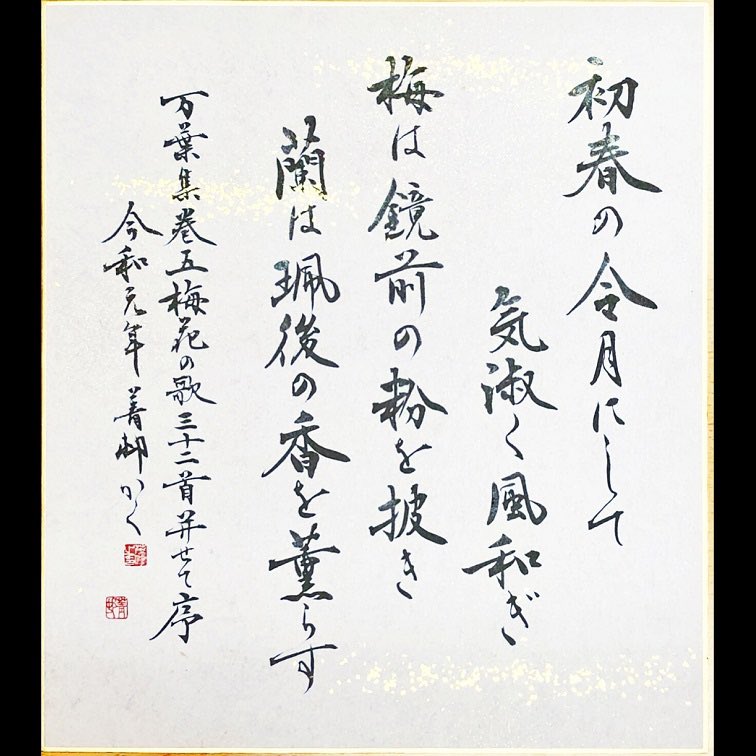 初春の令月にして
気淑く風和ぎ
梅は鏡前の粉を披き
蘭は珮後の香を薫らす
万葉集巻五梅花の歌三十二首并せて序
令和元年 菁邨かく